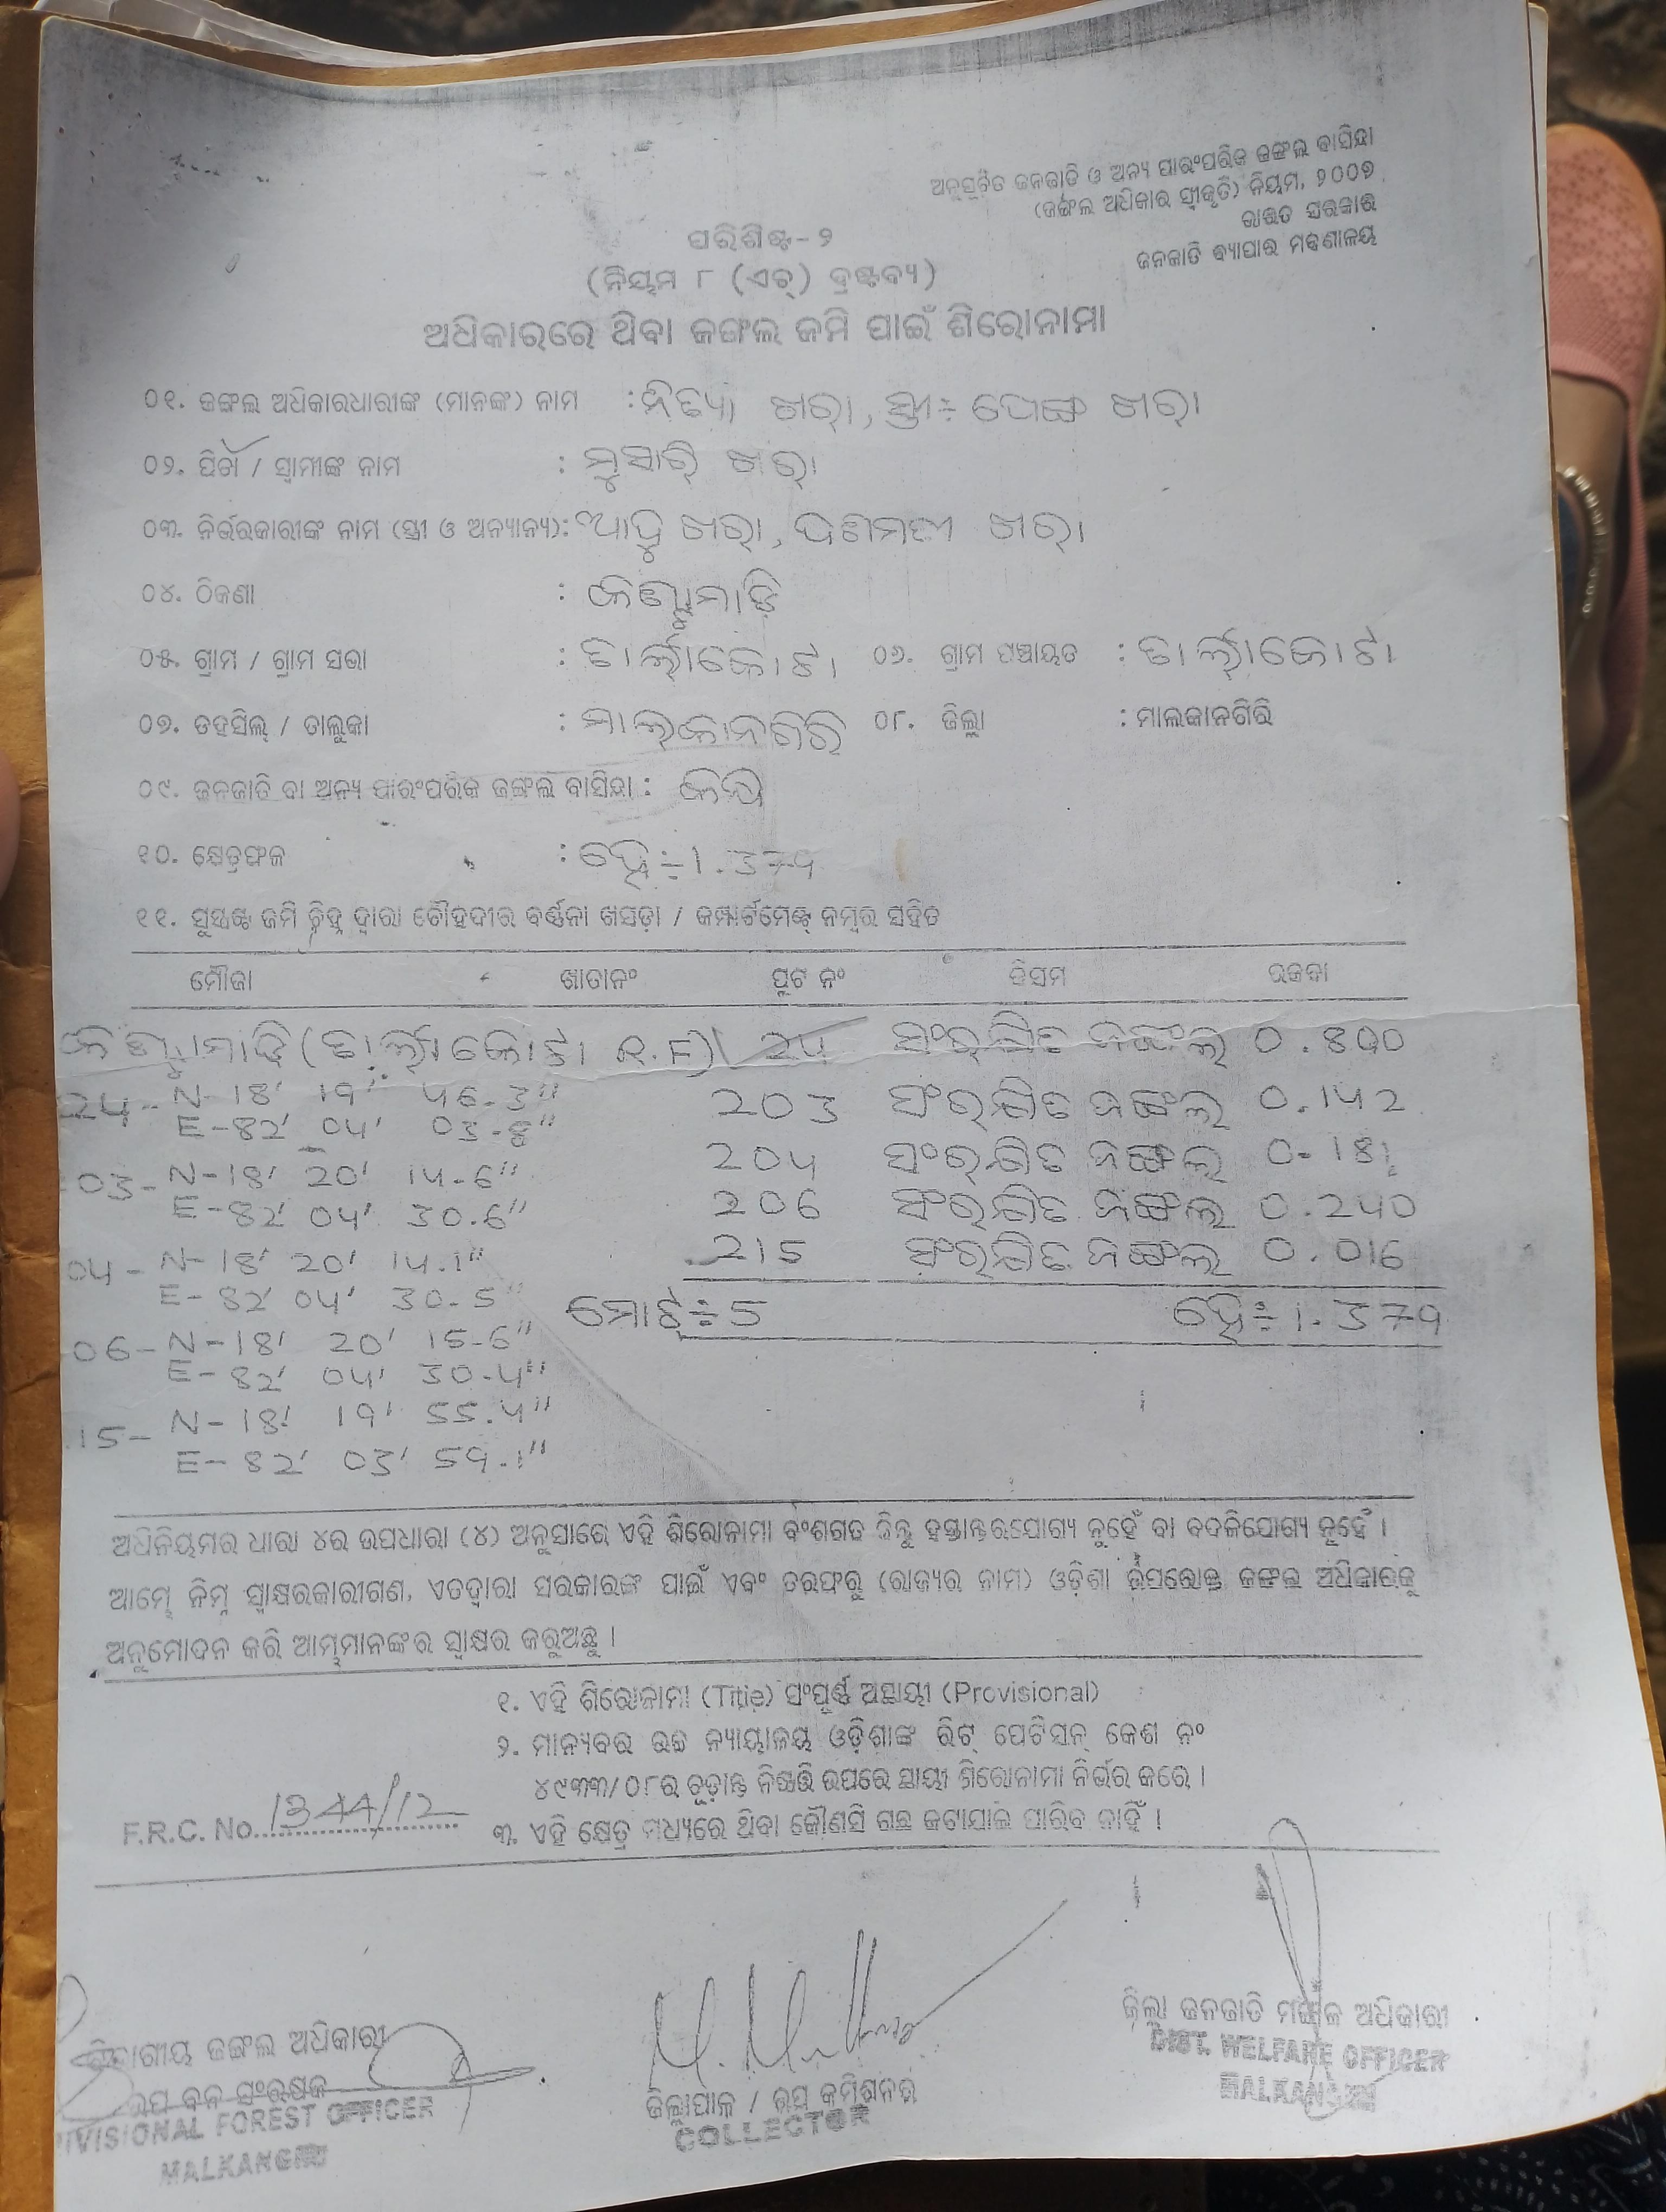 ଅନୁସୂଚିତ ଜନଜାତି ଓ ଅନ୍ୟ ପାରଂପରିକ ଜଙ୍ଗଲ ବାସିନ୍ଦା
(ଜଙ୍ଗଲ ଅଧିକାର ସ୍ୱୀକୃତି) ନିୟମ, ୨୦୦୭
ଭାରତ ସରକାର
ଜନଜାତି ବ୍ୟାପାର ମନ୍ତ୍ରଣାଳୟ
ପରିଶିଷ୍ଟ-୨
(ନିୟମ ୮ (ଏଚ୍) ଦ୍ରଷ୍ଟବ୍ୟ)
ଅଧିକାରରେ ଥିବା ଜଙ୍ଗଲ ଜମି ପାଇଁ ଶିରୋନାମା
୦୧. ଜଙ୍ଗଲ ଅଧିକାରଧାରୀଙ୍କ (ମାନଙ୍କ) ନାମ : ନିତ୍ୟା ଖରା, ସ୍ତ୍ରୀ÷ ଖରା
୦୨. ପିତା / ସ୍ୱାମୀଙ୍କ ନାମ : ମୁସାରି ଖରା
୦୩. ନିର୍ଭରକାରୀଙ୍କ ନାମ (ସ୍ତ୍ରୀ ଓ ଅନ୍ୟାନ୍ୟ): ଖରା, ଖରା
୦୪. ଠିକଣା :
୦୫. ଗ୍ରାମ / ଗ୍ରାମ ସଭା : ୦୬. ଗ୍ରାମ ପଞ୍ଚାୟତ :
୦୭. ତହସିଲ୍ / ତାଲୁକା : ମାଲକାନଗିରି ୦୮. ଜିଲ୍ଲା : ମାଲକାନଗିରି
୦୯. ଜନଜାତି ବା ଅନ୍ୟ ପାରଂପରିକ ଜଙ୍ଗଲ ବାସିନ୍ଦା : କନ୍ଧ
୧୦. କ୍ଷେତ୍ରଫଳ : ହେ÷1.379
୧୧. ସୁସ୍ପଷ୍ଟ ଜମି ଚିହ୍ନ ଦ୍ୱାରା ଚୌହଦୀର ବର୍ଣ୍ଣନା ଖସଡ଼ା / କମ୍ପାର୍ଟମେଣ୍ଟ୍ ନମ୍ବର ସହିତ
ମୌଜା ଖାତାନଂ ପ୍ଲଟ ନଂ କିସମ ରକବା
R.F) 24 ସଂରକ୍ଷିତ ଜଙ୍ଗଲ 0.800
24- N-18' 19' 46.3"
E-82' 04' 03.8"
203 ସଂରକ୍ଷିତ ଜଙ୍ଗଲ 0.142
03- N-18' 20' 14.6"
E-82' 04' 30.6"
204 ସଂରକ୍ଷିତ ଜଙ୍ଗଲ 0.181
206 ସଂରକ୍ଷିତ ଜଙ୍ଗଲ 0.240
04- N-18' 20' 14.1"
E-82' 04' 30.5"
215 ସଂରକ୍ଷିତ ଜଙ୍ଗଲ 0.016
ମୋଟ୍÷5 ହେ÷1.379
06- N-18' 20' 15.6"
E-82' 04' 30.4"
15- N-18' 19' 55.4"
E-82' 03' 59.1"
ଅଧିନିୟମର ଧାରା ୪ର ଉପଧାରା (୪) ଅନୁସାରେ ଏହି ଶିରୋନାମା ବଂଶଗତ କିନ୍ତୁ ହସ୍ତାନ୍ତରଯୋଗ୍ୟ ନୁହେଁ ବା ବଦଳିଯୋଗ୍ୟ ନୁହେଁ ।
ଆମ୍ଭେ ନିମ୍ନ ସ୍ୱାକ୍ଷରକାରୀଗଣ, ଏତଦ୍ୱାରା ସରକାରଙ୍କ ପାଇଁ ଏବଂ ତରଫରୁ (ରାଜ୍ୟର ନାମ) ଓଡ଼ିଶା ଉପରୋକ୍ତ ଜଙ୍ଗଲ ଅଧିକାରକୁ
ଅନୁମୋଦନ କରି ଆମ୍ଭମାନଙ୍କର ସ୍ୱାକ୍ଷର କରୁଅଛୁ ।
୧. ଏହି ଶିରୋନାମା (Title) ସଂପୂର୍ଣ୍ଣ ଅସ୍ଥାୟୀ (Provisional)
୨. ମାନ୍ୟବର ଉଚ୍ଚ ନ୍ୟାୟାଳୟ ଓଡ଼ିଶାଙ୍କ ରିଟ୍ ପେଟିସନ୍ କେଶ ନଂ
୪୯୩୩/୦୮ର ଚୂଡ଼ାନ୍ତ ନିଷ୍ପତ୍ତି ଉପରେ ସ୍ଥାୟୀ ଶିରୋନାମା ନିର୍ଭର କରେ ।
F.R.C. No. 1344/12
୩. ଏହି କ୍ଷେତ୍ର ମଧ୍ୟରେ ଥିବା କୌଣସି ଗଛ କଟାଯାଇ ପାରିବ ନାହିଁ ।
ବିଭାଗୀୟ ଜଙ୍ଗଲ ଅଧିକାରୀ
ଉପ ବନ ସଂରକ୍ଷକ
DIVISIONAL FOREST OFFICER
MALKANGIRI
ଜିଲ୍ଲାପାଳ / ଉପ କମିଶନର
COLLECTOR
ଜିଲ୍ଲା ଜନଜାତି ମଙ୍ଗଳ ଅଧିକାରୀ
DIST. WELFARE OFFICER
MALKANGIRI